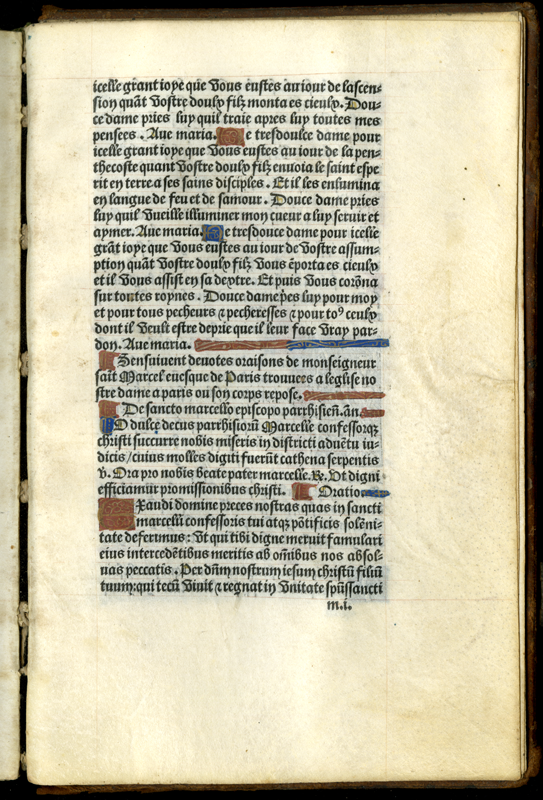 icelle grant ioye que Vous eustes au iour de lascen-
sion quāt Vostre doulx filz monta es cieulx. Dou-
ce dame pries luy quil traie apres luy toutes mes
pensees. Aue maria. E tresdoulce dame pour
icelle grant ioye que Vous eustes au iour de la pen-
thecoste quant Vostre doulx filz enuoia le saint espe
rit en terre a ses sains disciples. Et il les enlumina
en langue de feu et de samour. Douce dame pries
luy quil Vueille illuminer mon cueur a luy seruir et
aymer. Aue maria. E tresdouce dame pour icelle
grāt ioye que Vous eustes au iour de Vostre assum-
ption quāt Vostre doulx filz Vous ēporta es cieulx
et il Vous assist en sa dextre. Et puis Vous corōna
sur toutes roynes. Douce dame p̄es luy pour moy
et pour tous pecheurs ⁊ pecheresses ⁊ pour toꝰ ceulx
dont il Veult estre deprie que il leur face Vray par-
don. Aue maria.
Sensuiuent deuotes oraisons de monseigneur
sait Marcel euesque de Paris trouuees a leglise no
stre dame a paris ou son corps repose.
De sancto marcello episcopo parrhisien̄. an.
O dulce decus parrhisiorū Marcelle confessorqȝ
christi succurre nobis miseris in districti aduētu iu-
dicis/cuius molles digiti fuerūt cathena serpentis
v. Ora pro nobis beate pater marcelle. ℟. Vt digni
efficiamur promissionibus christi. Oratio
Xaudi domine preces nostras quas in sancti
marcelli confessoris tui atqȝ pōtificis solēni-
tate deferimus: Vt qui tibi digne meruit famulari
eius intercedētibus meritis ab om̄ibus nos absol-
uas peccatis. Per dn̄m nostrum iesum christū filiū
tuum: qui tecū Viuit ⁊ regnat in Vnitate sp̄ussancti
m.i.